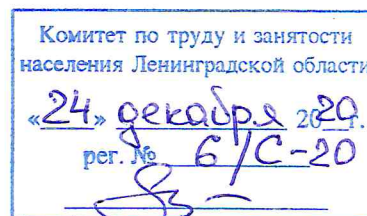 Комитет по труду и занятости
населения Ленинградской области
«24» декабря 2020г.
рег. № 6/С-20